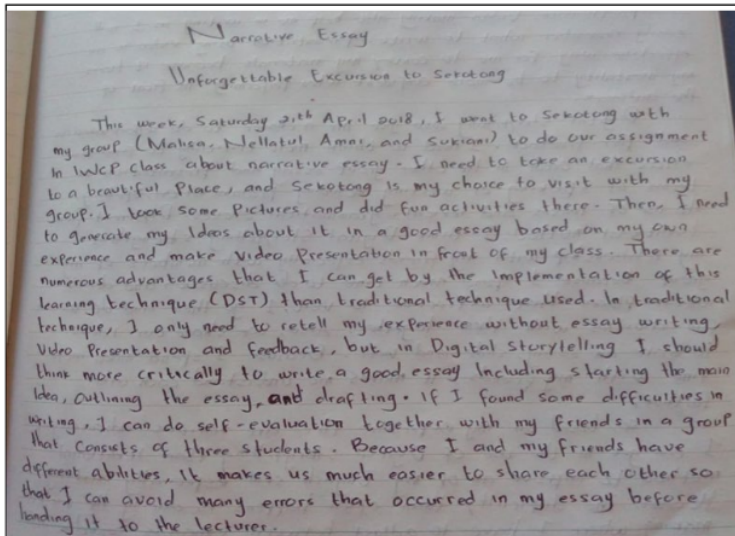 Narrative Essay
Unforgettable Excursion to Sekotong
This week, Saturday 21th April 2018, I went to Sekotong with
my group (Malisa, Nellatul, Amni, and Sukiani) to do our assignment
in IWCP class about narrative essay. I need to take an excursion
to a beautiful Place, and Sekotong is my choice to visit with my
group. I took some Pictures and did fun activities there. Then, I need
to generate my Ideas about it in a good essay based on my own
experience and make video Presentation in front of my class. There are
numerous advantages that I can get by the implementation of this
learning technique (DST) than traditional technique used. In traditional
technique, I only need to retell my experience without essay writing,
Video Presentation and feedback, but in Digital Storytelling I should
think more critically to write a good essay Including starting the main
Idea, outlining the essay, and drafting. If I found some difficulties in
writing, I can do self-evaluation together with my friends in a group
that consists of three students. Because I and my friends have
different abilities, It makes us much easier to share each other so
that I can avoid many errors that occurred in my essay before
handing it to the lecturer.